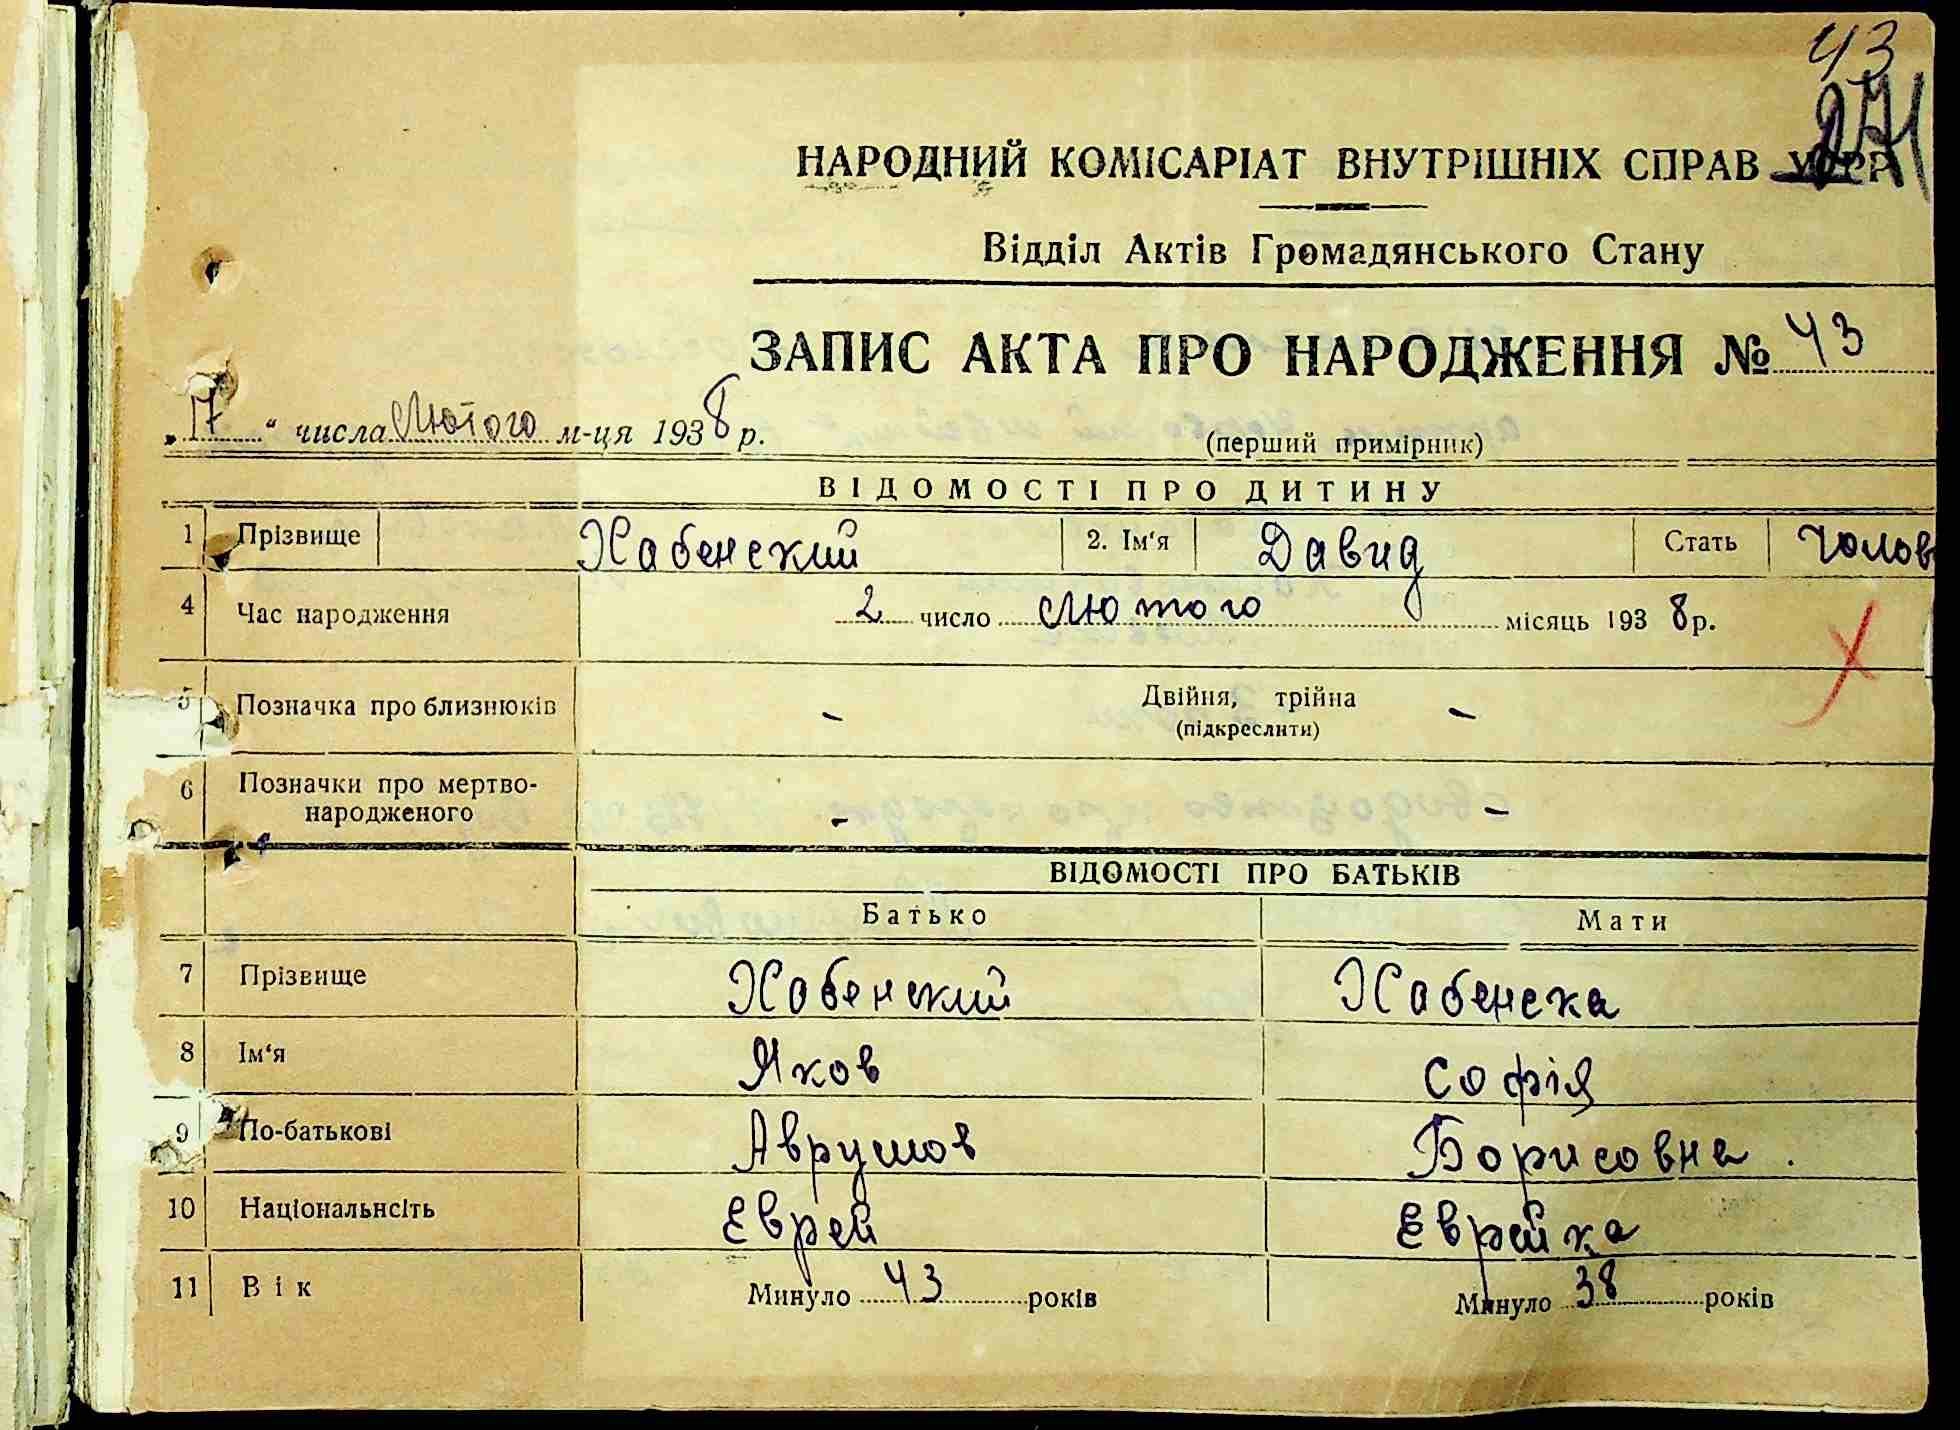 43
271
НАРОДНИЙ КОМІСАРІАТ ВНУТРІШНІХ СПРАВ УСРР
Відділ Актів Громадянського Стану
ЗАПИС АКТА ПРО НАРОДЖЕННЯ № 43
„17“ числа Лютого м-ця 1938 р.
(перший примірник)
ВІДОМОСТІ ПРО ДИТИНУ
1 Прізвище Хабенский 2. Ім'я Давид Стать Чолов
4 Час народження 2 число Лютого місяць 1938 р.
5 Позначка про близнюків - Двійня, трійна -
(підкреслити)
6 Позначки про мертво-
народженого - -
ВІДОМОСТІ ПРО БАТЬКІВ
Батько Мати
7 Прізвище Хабенский Хабенска
8 Ім'я Яков Софія
9 По-батькові Аврумов Борисовна.
10 Національнсіть Еврей Еврейка
11 Вік Минуло 43 років Минуло 38 років